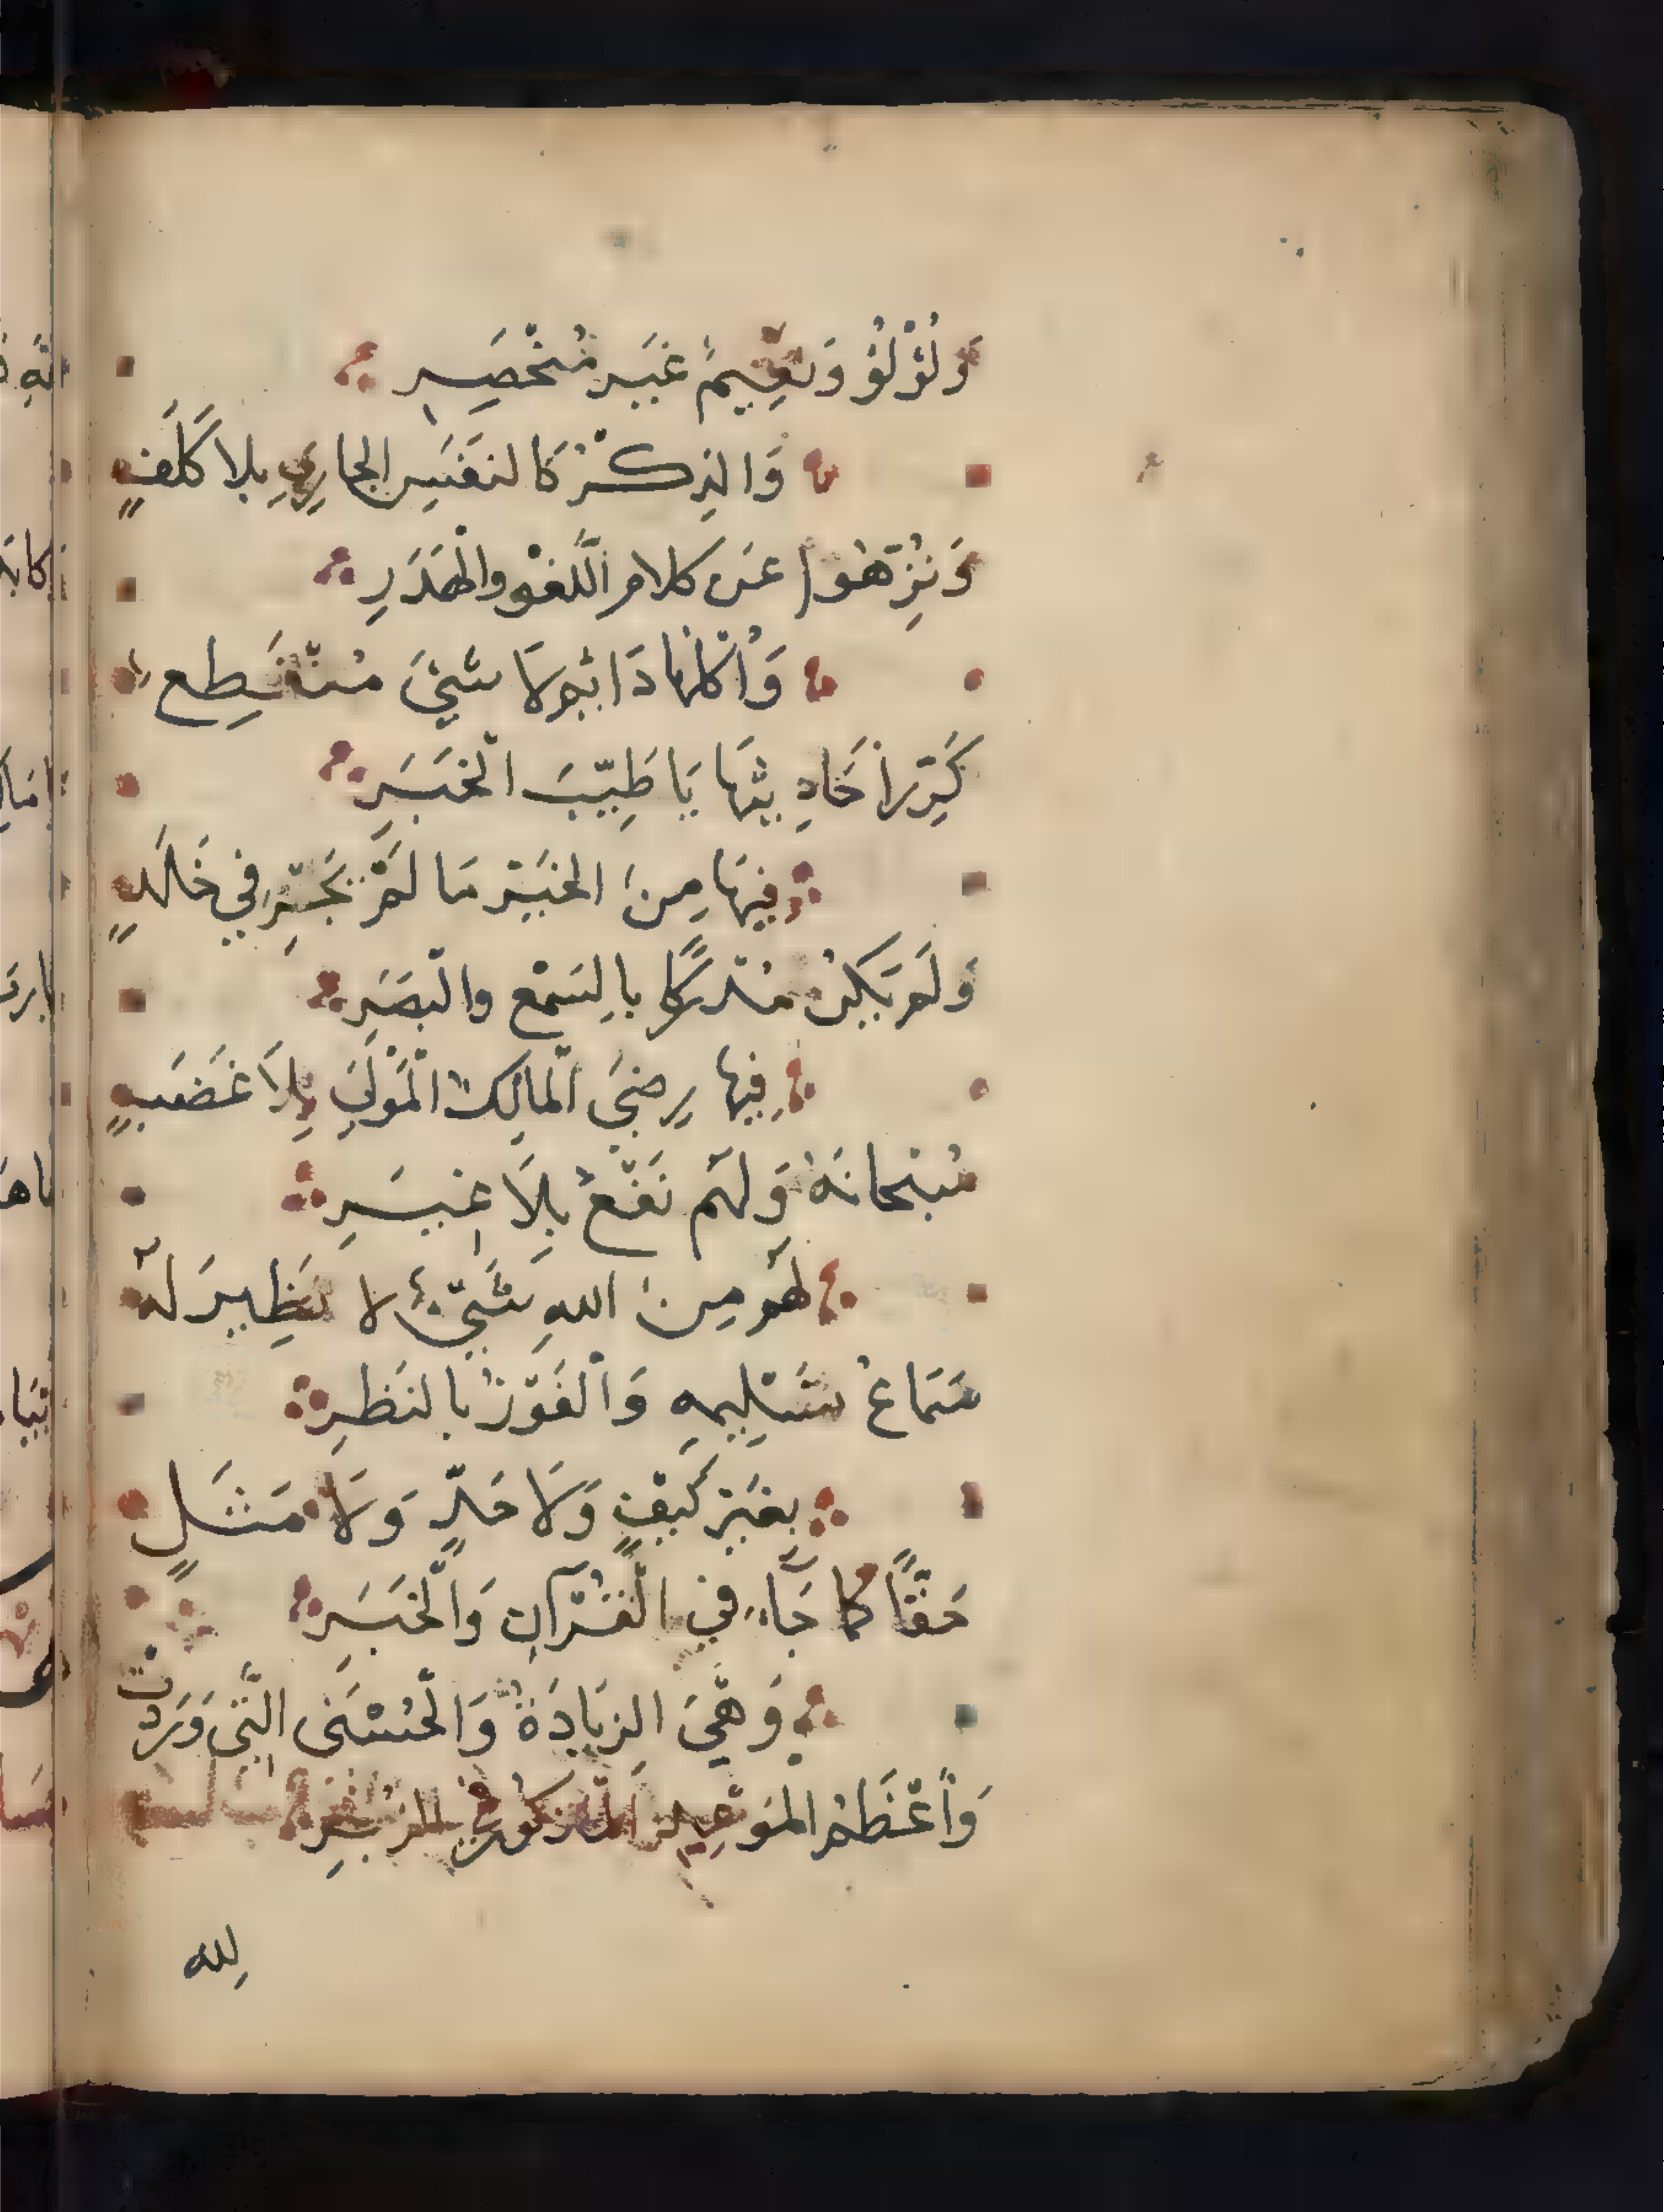 وَلُؤْلُؤ وَنَعِيمٌ غَيرَ مُنْحَصِرِ
وَالذِكْرُ كَالنَفَسِ الجارِي بلا كَلَفٍ
وَنُزِّهُوا عَن كلام اللَّغْو والْهَذَرِ
وَأُكْلُهَا دَائمٌ لَا شَيْءَ مُنْقَطِع
كَرِّرْ أَحَادِيثَهَا يَا طَيِّبَ الْخَبَرِ
فِيهَا مِنَ الخَيْرِ مَا لَمْ يَجْرِ في خَلَدٍ
وَلَم يَكُنْ مُدْرَكًا بالسَمْعِ والْبَصَرِ
فِيهَا رِضَى الْمَالِكِ الْمَوْلَى بِلَا غَضَبٍ
سُبْحانَهُ وَلَهُم نَفْعٌ بِلَا غِيَرِ
لَهُم مِنَ اللهِ شَيْءٌ لا نَظِيرَ لَهُ
سَمَاعُ تَسْلِيمِهِ وَالْفَوْزُ بالنَظَرِ
بِغَيْرِ كَيْفٍ وَلَا حَدٍّ وَلَا مَثَلٍ
حَقًّا كَما جَآءَ في الْقُرْآنِ وَالْخَبَرِ
وَهْيَ الزِيَادَةُ وَالْحُسْنَى الَّتِي وَرَدَتْ
وَأَعْظَمُ المَوْعِدِ المَذْكُورِ في الزُبُرِ
لله